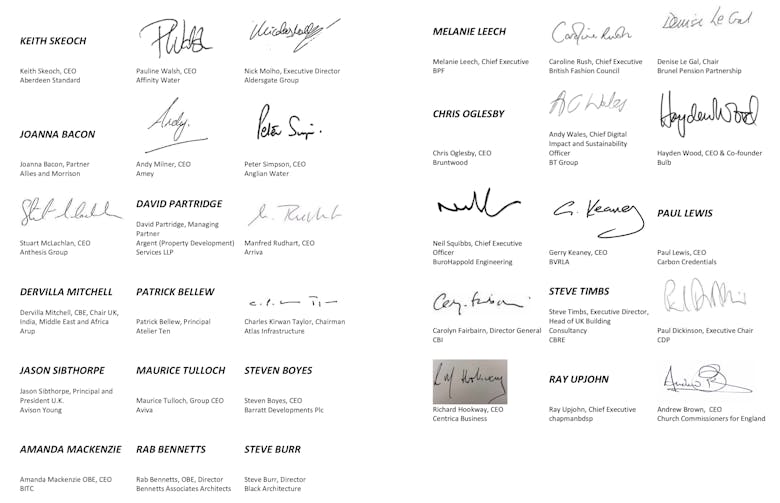 KEITH SKEOCH
Keith Skeoch, CEO
Aberdeen Standard
Pauline Walsh, CEO
Affinity Water
Nick Molho, Executive Director
Aldersgate Group
JOANNA BACON
Joanna Bacon, Partner
Allies and Morrison
Andy.
Andy Milner, CEO
Amey
Peter Simpson, CEO
Anglian Water
Stuart McLachlan, CEO
Anthesis Group
DAVID PARTRIDGE
David Partridge, Managing
Partner
Argent (Property Development)
Services LLP
Manfred Rudhart, CEO
Arriva
DERVILLA MITCHELL
Dervilla Mitchell, CBE, Chair UK,
India, Middle East and Africa
Arup
PATRICK BELLEW
Patrick Bellew, Principal
Atelier Ten
Charles Kirwan Taylor, Chairman
Atlas Infrastructure
JASON SIBTHORPE
Jason Sibthorpe, Principal and
President U.K.
Avison Young
MAURICE TULLOCH
Maurice Tulloch, Group CEO
Aviva
STEVEN BOYES
Steven Boyes, CEO
Barratt Developments Plc
AMANDA MACKENZIE
Amanda Mackenzie OBE, CEO
BITC
RAB BENNETTS
Rab Bennetts, OBE, Director
Bennetts Associates Architects
STEVE BURR
Steve Burr, Director
Black Architecture
MELANIE LEECH
Melanie Leech, Chief Executive
BPF
Caroline Rush
Caroline Rush, Chief Executive
British Fashion Council
Denise Le Gal
Denise Le Gal, Chair
Brunel Pension Partnership
CHRIS OGLESBY
Chris Oglesby, CEO
Bruntwood
A C Wales
Andy Wales, Chief Digital
Impact and Sustainability
Officer
BT Group
Hayden Wood
Hayden Wood, CEO & Co-founder
Bulb
Neil Squibbs, Chief Executive
Officer
BuroHappold Engineering
G. Keaney
Gerry Keaney, CEO
BVRLA
PAUL LEWIS
Paul Lewis, CEO
Carbon Credentials
Carolyn Fairbairn, Director General
CBI
STEVE TIMBS
Steve Timbs, Executive Director,
Head of UK Building
Consultancy
CBRE
Paul Dickinson, Executive Chair
CDP
Richard Hookway, CEO
Centrica Business
RAY UPJOHN
Ray Upjohn, Chief Executive
chapmanbdsp
Andrew Brown, CEO
Church Commissioners for England